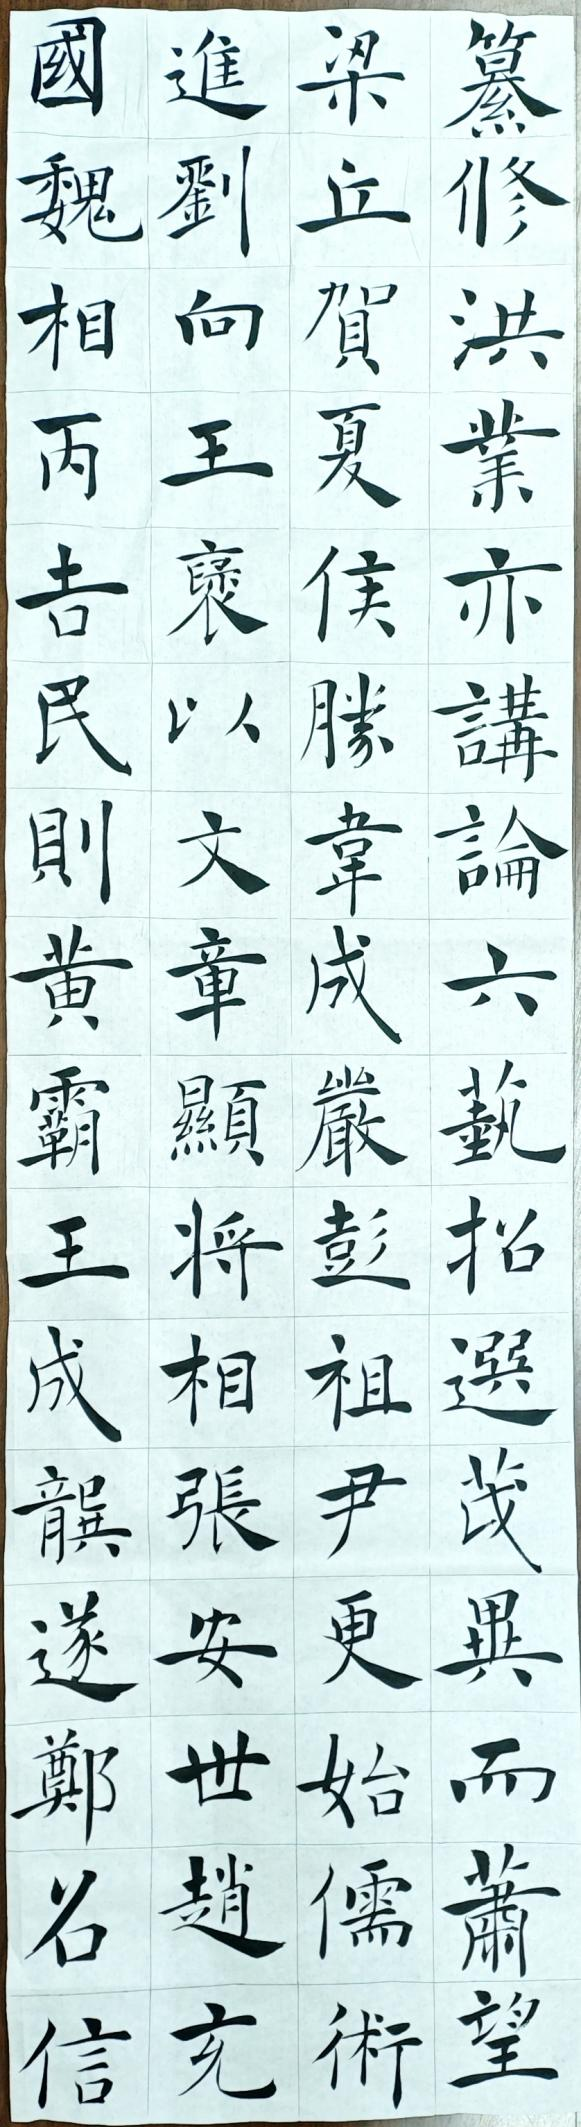 纂修洪業亦講論六藝招選茂異而蕭望
梁丘賀夏侯勝韋成嚴彭祖尹更始儒術
進劉向王褒以文章顯將相張安世趙充
國魏相丙吉民則黃霸王成龔遂鄭召信